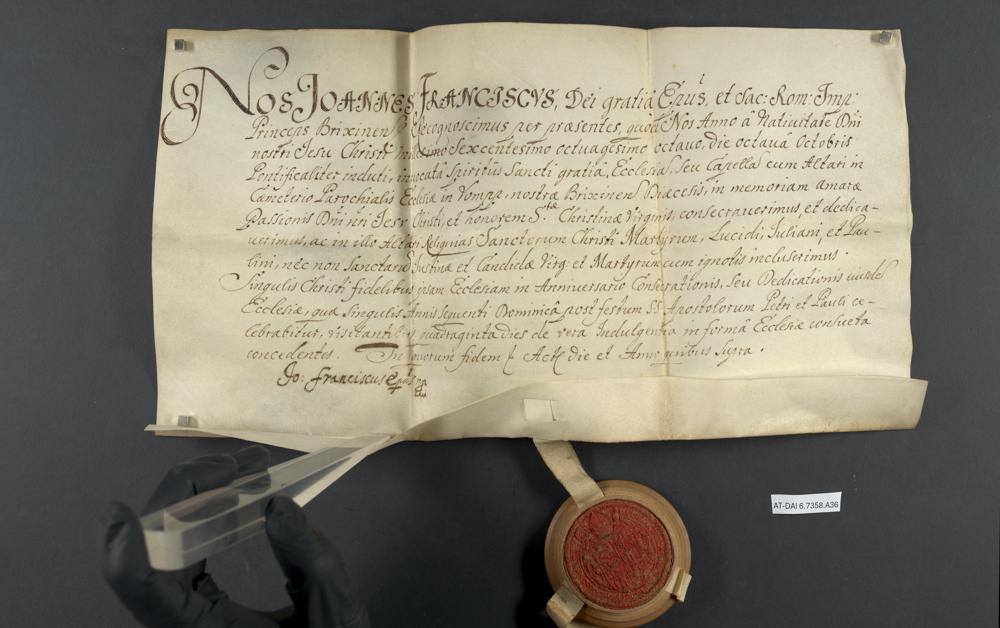 Nos Joannes Franciscus, Dei gratiâ Epu͠s, et Sac: Rom: Imp:
Princeps Brixinens recognoscimus per præsentes, quod Nos Anno â Nativitate Dn̄i
nostri Jesu Christi millesimo Sexcentesimo octuagesimo octavo, die octavâ Octobris
Pontificaliter induti, invocatâ Spiritûs Sancti gratiâ, Ecclesiã, seu Capellã cum Altari in
Cæmeterio Parochialis Ecclesiæ in Vomp, nostræ Brixinens Diæcesis, in memoriam amaræ
Passionis Dn̄i nr̄i Jesv Christi, et honorem S.tæ Christinæ Virginis, consecraverimus, et dedica-
verimus, ac in illo Altari Reliquias Sanctorum Christi Martyrum, Lucidi, Juliani, et Pau-
lini, nec non Sanctarũ Justinæ et Candidæ Virg: et Martyrum cum ignotis incluserimus.
Singulis Christi fidelibus ipsam Ecclesiam in Anniversario Consecrationis, seu Dedicationis eiusdẽ
Ecclesiæ, quæ singulis Annis sequenti Dominicâ post festum SS Apostolorum Petri et Pauli ce-
lebrabitur, visitantibus quadraginta dies de vera Indulgentia in formâ Ecclesiæ consueta
concedentes. In quorum fidem Act die et Anno quibus supra.
Jo: Franciscus Epus
AT-DAI 6.7358.A36